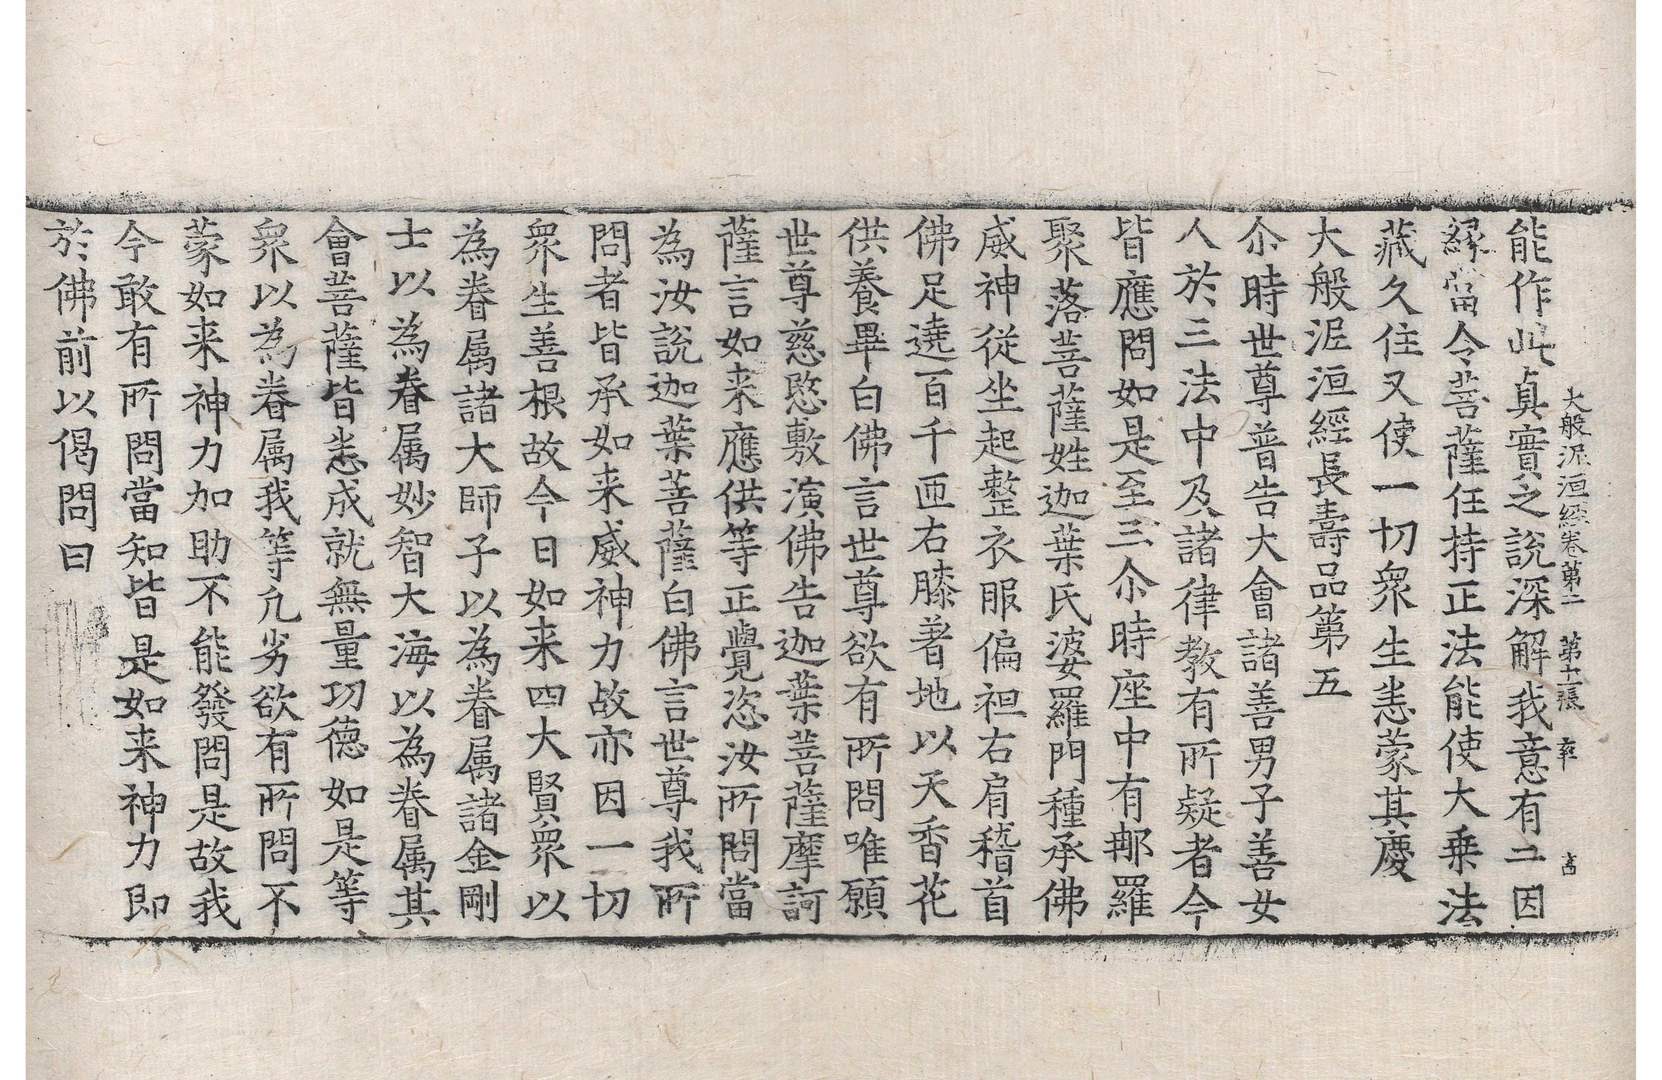 大般泥洹經卷第二 第十張
能作此真實之說深解我意有二因
緣當令菩薩任持正法能使大乗法
藏久住又使一切衆生悉蒙其慶
大般泥洹經長壽品第五
尒時世尊普告大會諸善男子善女
人於三法中及諸律教有所疑者今
皆應問如是至三尒時座中有䣍羅
聚落菩薩姓迦葉氏婆羅門種承佛
威神從坐起整衣服偏袒右肩稽首
佛足遶百千帀右膝著地以天香花
供養畢白佛言世尊欲有所問唯願
世尊慈愍敷演佛告迦葉菩薩摩訶
薩言如来應供等正覺恣汝所問當
為汝說迦葉菩薩白佛言世尊我所
問者皆承如来威神力故亦因一切
衆生善根故今日如来四大賢衆以
為眷属諸大師子以為眷属諸金剛
士以為眷属妙智大海以為眷属其
會菩薩皆悉成就無量功德如是等
衆以為眷属我等凡劣欲有所問不
蒙如来神力加助不能發問是故我
今敢有所問當知皆是如来神力即
於佛前以偈問曰